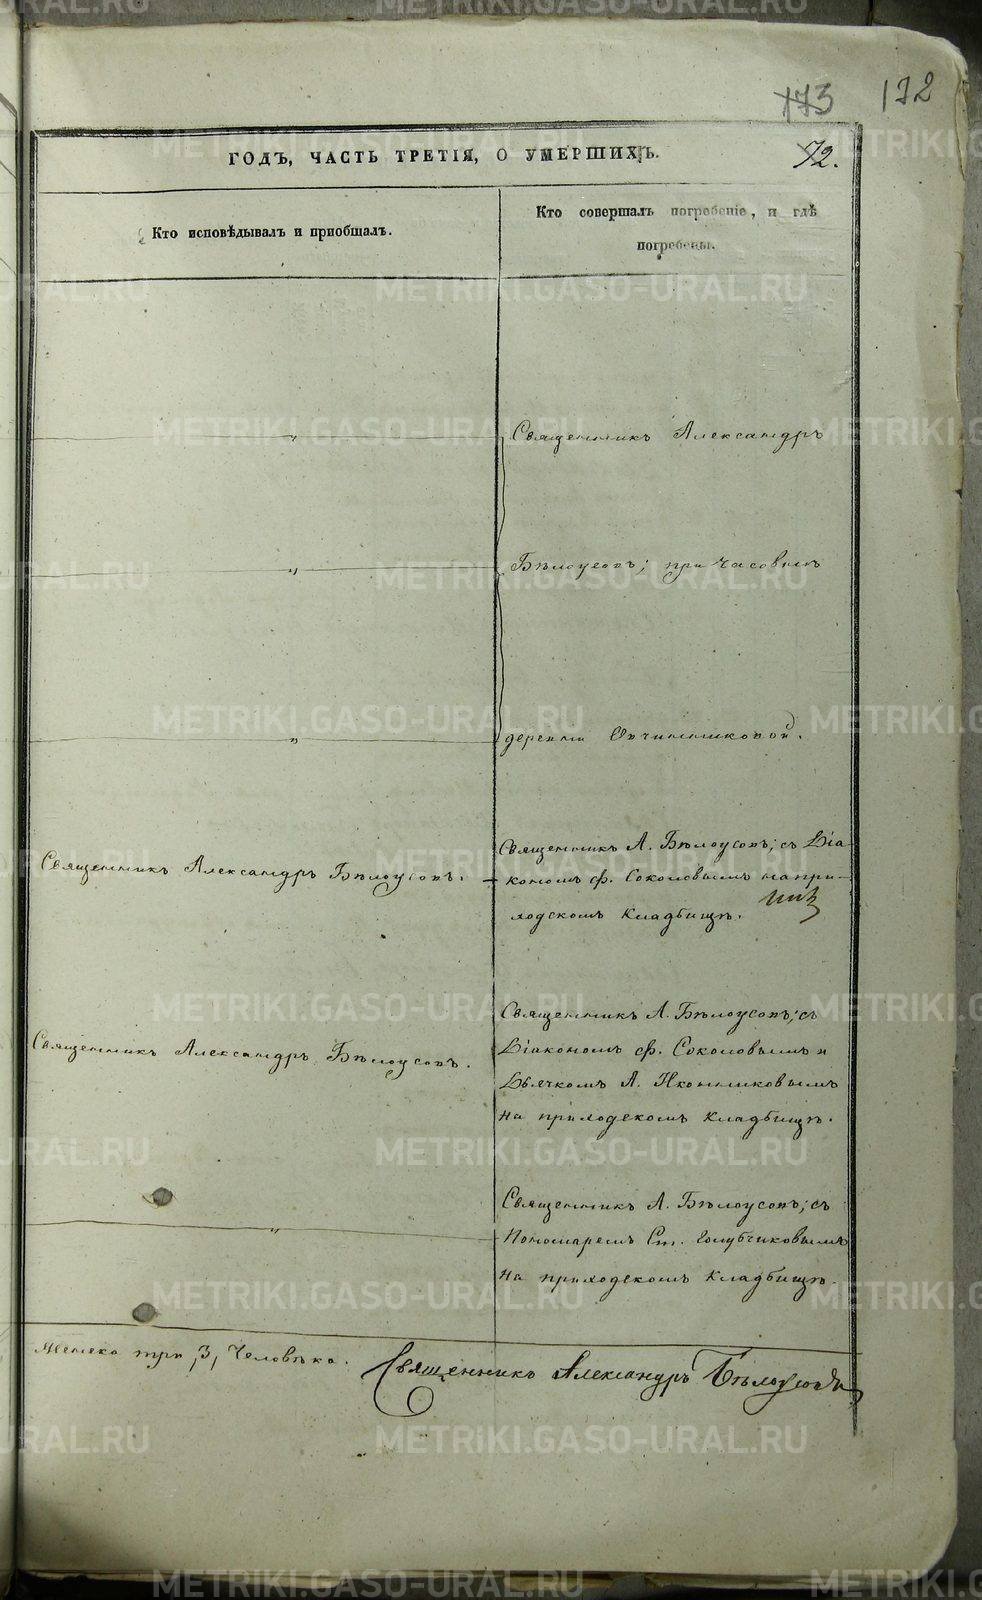 173 172
ГОДЪ, ЧАСТЬ ТРЕТІЯ, О УМЕРШИХЪ. 72.
Кто исповѣдывалъ и пріобщалъ.
Кто совершалъ погребеніе, и гдѣ
погребены.
Священникъ Александръ
Бѣлоусовъ; при часовнѣ
деревни Овчинниковой.
Священникъ Александръ Бѣлоусовъ.
Священникъ А. Бѣлоусовъ; съ Діа-
кономъ Ф. Соколовымъ на при-
ходскомъ кладбищѣ.
Священникъ Александръ Бѣлоусовъ.
Священникъ А. Бѣлоусовъ; съ
Діакономъ Ф. Соколовымъ и
Дьячкомъ А. Иконниковымъ
на приходскомъ кладбищѣ.
Священникъ А. Бѣлоусовъ; съ
Пономаремъ Ст. Голубчиковымъ
на приходскомъ кладбищѣ.
три, 3, человѣка.
Священникъ Александръ Бѣлоусовъ
METRIKI.GASO-URAL.RU